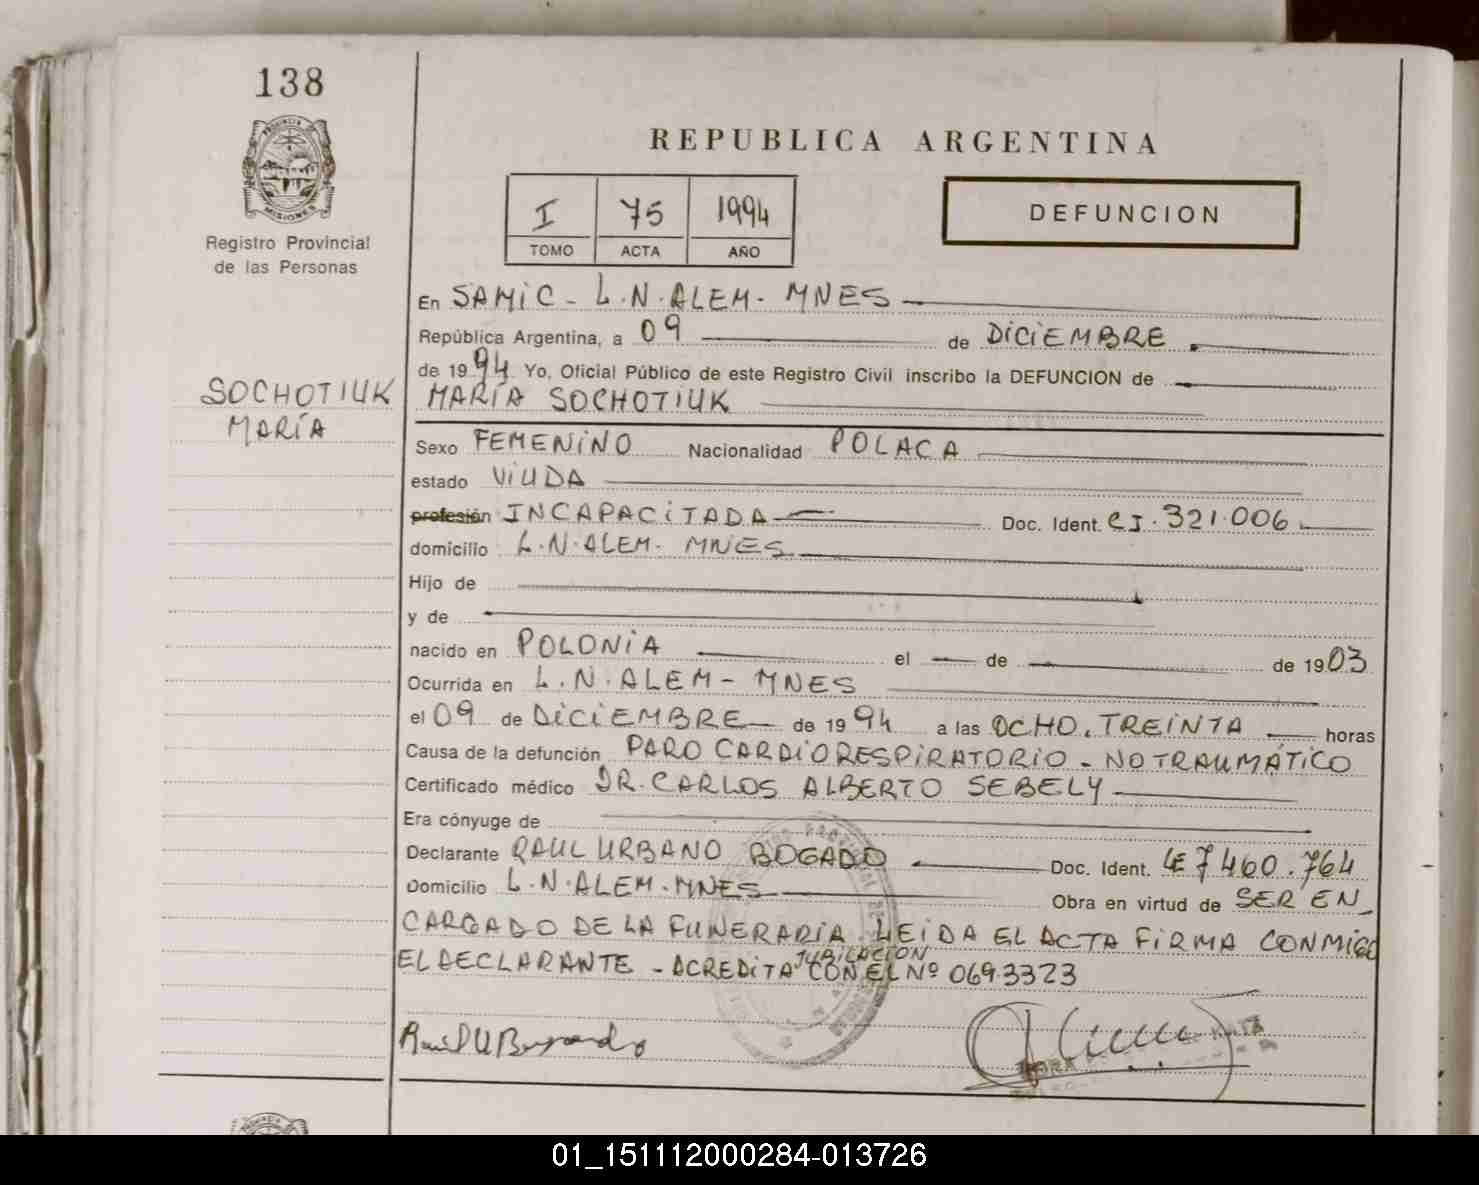 138
PROVINCIA DE
MISIONES
Registro Provincial
de las Personas
SOCHOTIUK
MARÍA
REPUBLICA ARGENTINA
I 75 1994
TOMO ACTA AÑO
DEFUNCION
En SAMIC - L.N.ALEM - MNES
República Argentina, a 09 de DICIEMBRE
de 1994 Yo, Oficial Público de este Registro Civil inscribo la DEFUNCION de
MARÍA SOCHOTIUK
Sexo FEMENINO Nacionalidad POLACA
estado VIUDA
profesión INCAPACITADA Doc. Ident. CI. 321.006
domicilio L.N.ALEM - MNES
Hijo de
y de
nacido en POLONIA el de de 1903
Ocurrida en L.N.ALEM - MNES
el 09 de DICIEMBRE de 1994 a las OCHO, TREINTA horas
Causa de la defunción PARO CARDIORESPIRATORIO - NO TRAUMÁTICO
Certificado médico DR. CARLOS ALBERTO SEBELY
Era cónyuge de
Declarante RAUL URBANO BOGADO Doc. Ident. LE 7460.764
Domicilio L.N.ALEM - MNES Obra en virtud de SER EN
CARGADO DE LA FUNERARIA. LEIDA EL ACTA FIRMA CONMIGO
JUBILACION
EL DECLARANTE - ACREDITA CON EL Nº 069.3323
01_151112000284-013726